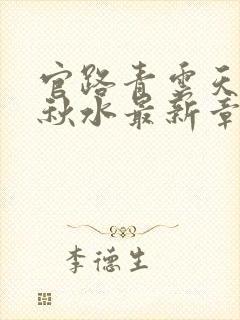 官路青云天
秋水最新章
李德生